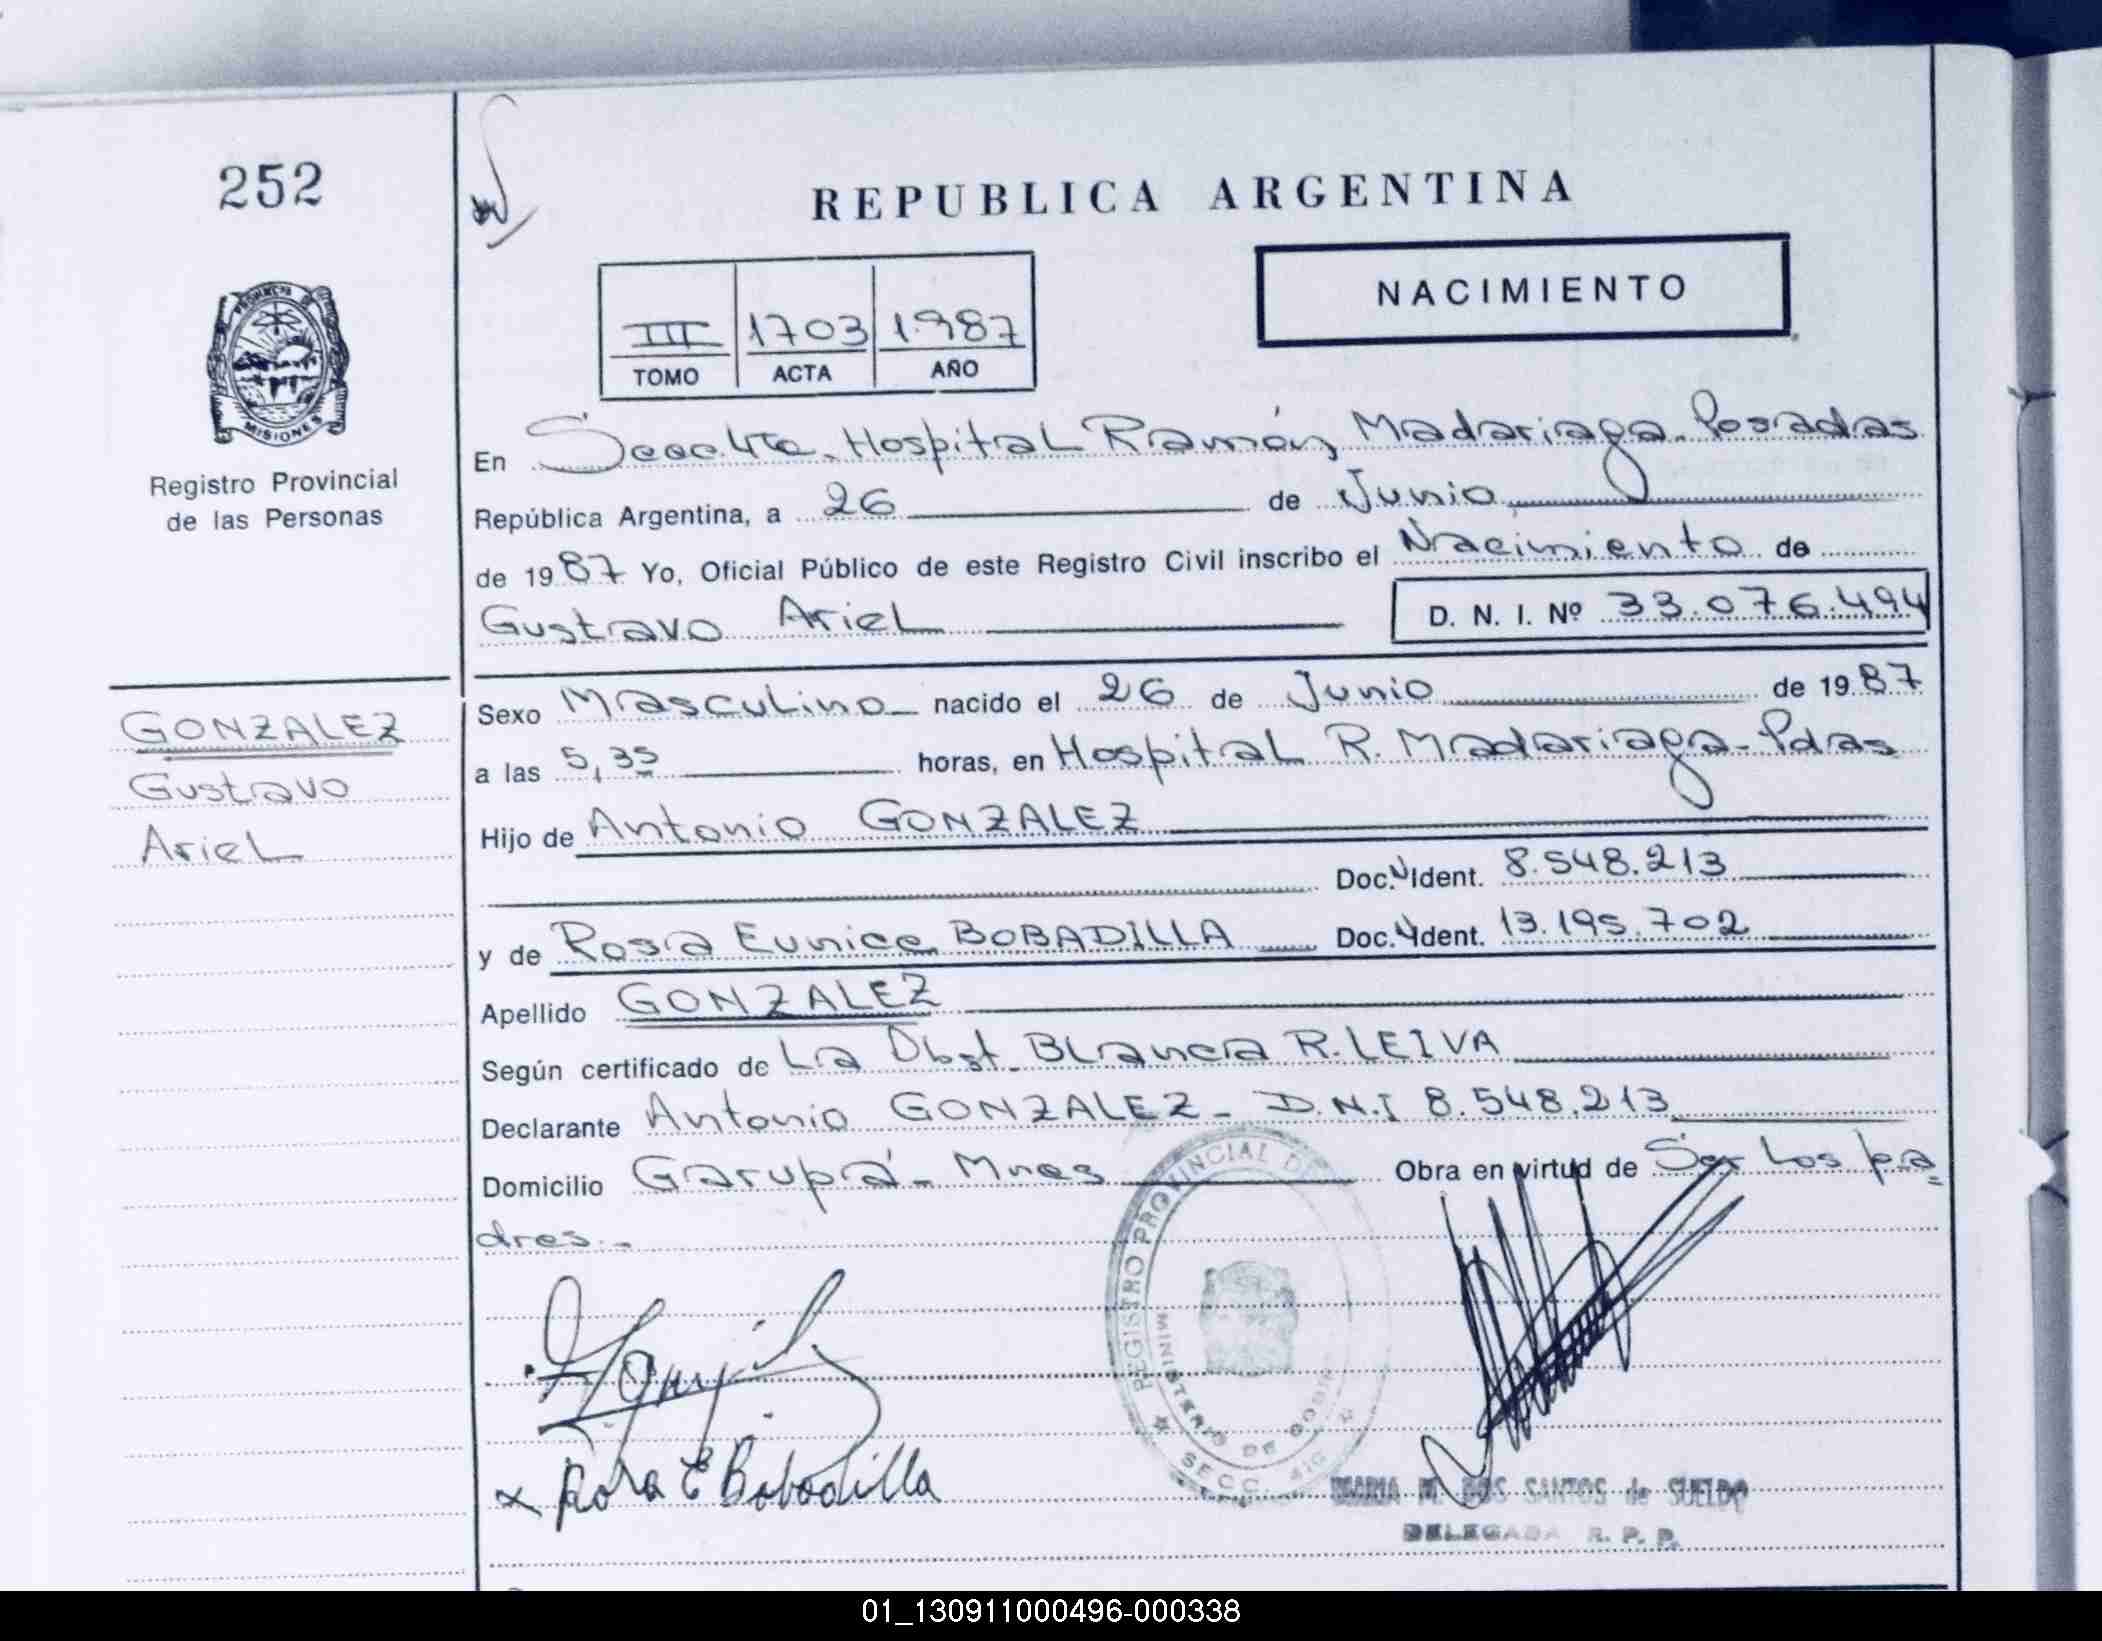 252
REPUBLICA ARGENTINA
NACIMIENTO
III 1703 1987
TOMO ACTA AÑO
PROVINCIA DE
MISIONES
Registro Provincial
de las Personas
En Secc. 4ta. Hospital Ramón Madariaga - Posadas
República Argentina, a 26 de Junio
de 1987 Yo, Oficial Público de este Registro Civil inscribo el Nacimiento de
Gustavo Ariel D. N. I. Nº 33.076.494
GONZALEZ
Gustavo
Ariel
Sexo Masculino nacido el 26 de Junio de 1987
a las 5,35 horas, en Hospital R. Madariaga - Pdas
Hijo de Antonio GONZALEZ
Doc. Ident. 8.548.213
y de Rosa Eunice BOBADILLA Doc. Ident. 13.195.702
Apellido GONZALEZ
Según certificado de La Obst. Blanca R. LEIVA
Declarante Antonio GONZALEZ - D.N.I 8.548.213
Domicilio Garupá - Mnes Obra en virtud de Ser Los pa=
dres.-
REGISTRO PROVINCIAL DE
MINISTERIO DE GOBIER
SECC. 4TA
x Rosa E Bobadilla
MARIA M. DOS SANTOS de SUELDO
DELEGADA R. P. P.
01_130911000496-000338